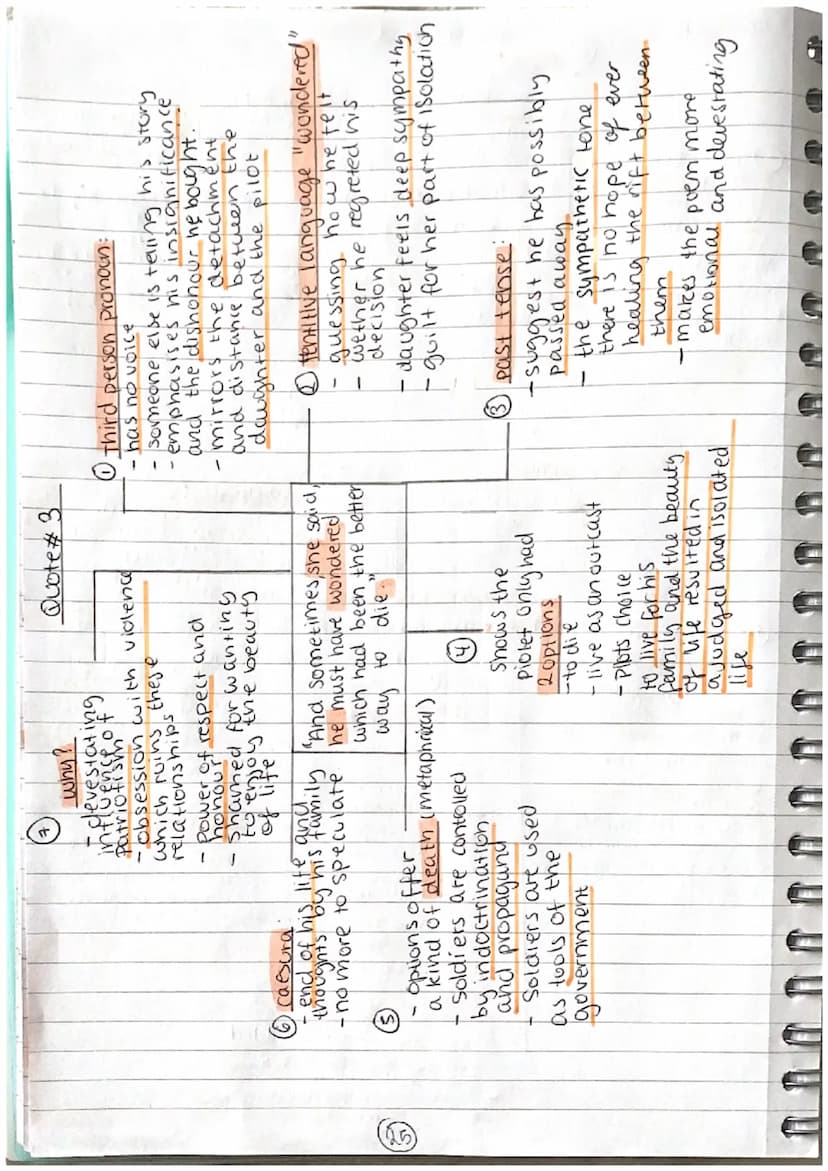 Quote # 3
① Third person pronoun:
- has no voice
- someone else is telling his story
- emphasises his insignificance
and the dishonour he bought.
- mirrors the detachment
and distance between the
daughter and the pilot
② tentitive language "wondered"
- guessing how he felt
- wether he regretted his
decision
- daughter feels deep sympathy
- guilt for her part of isolation
③ past tense:
- suggest he has possibly
passed away
- the sympathetic tone
there is no hope of ever
healing the rift between
them
- makes the poem more
emotional and devestating
"And sometimes, she said,
he must have wondered
which had been the better
way to die."
④
shows the
piolet only had
2 options
- to die
- live as an outcast
- pilots choice
to live for his
family and the beauty
of life resulted in
a judged and isolated
life
⑤
- options offer
a kind of death (metaphorical)
- soldiers are controlled
by indoctrination
and propagand
- Soldiers are used
as tools of the
government
⑥ caesura:
- end of his life and
thoughts by his family
- no more to speculate
⑦ Why?
- devestating
influence of
patriotism
- obsession with violence
which ruins these
relationships
- Power of respect and
honour
- shamed for wanting
to enjoy the beauty
of life
25